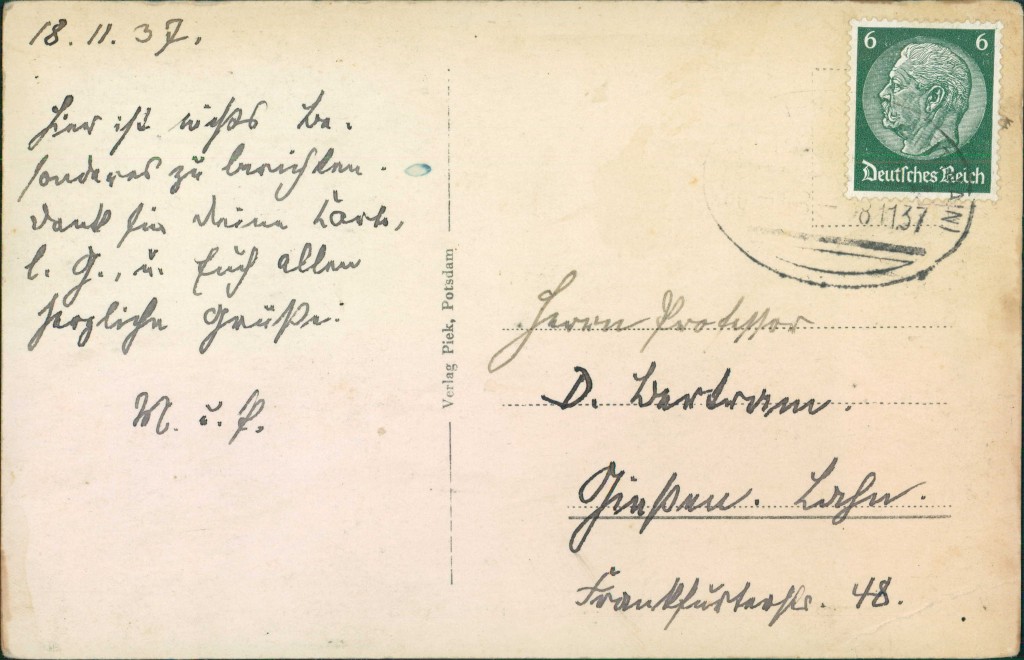 18. 11. 37.
Hier ist nichts be-
sonderes zu berichten.
Dank für Deine Karte,
l. G., u. Euch allen
herzliche Grüße.
M. u. P.
Verlag Piek, Potsdam
6 6
Deutsches Reich
8.11.37
Herrn Professor
D. Bertram.
Gießen. Lahn.
Frankfurterstr. 48.